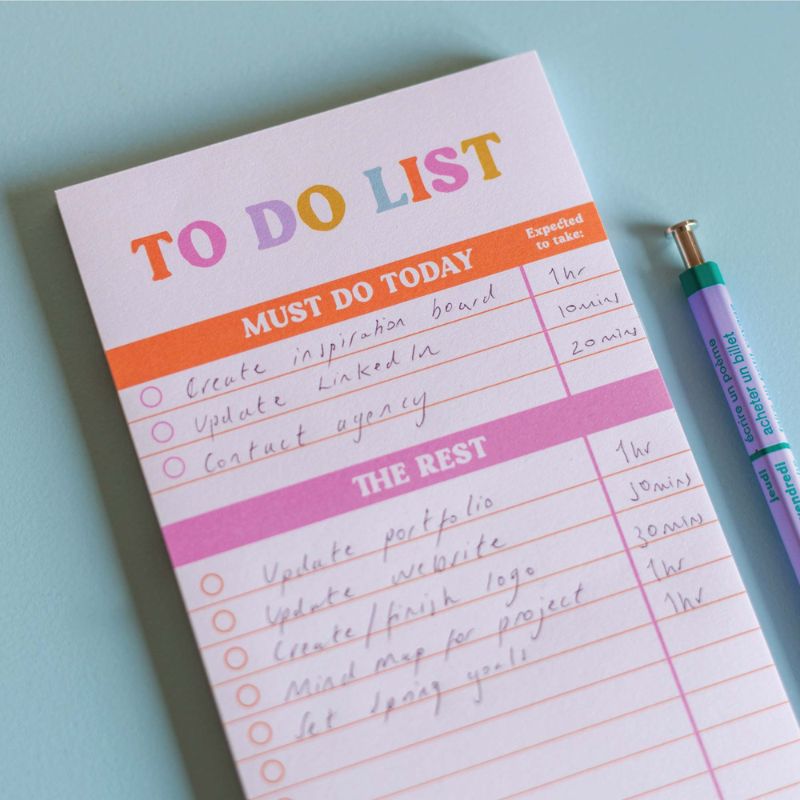 TO DO LIST
MUST DO TODAY Expected to take:
Create inspiration board 1hr
Update LinkedIn 10mins
Contact agency 20mins
THE REST
Update portfolio 1hr
Update website 30mins
Create/finish logo 30mins
Mind map for project 1hr
Set spring goals 1hr
écrire un poème
acheter un billet
jeudi
vendredi